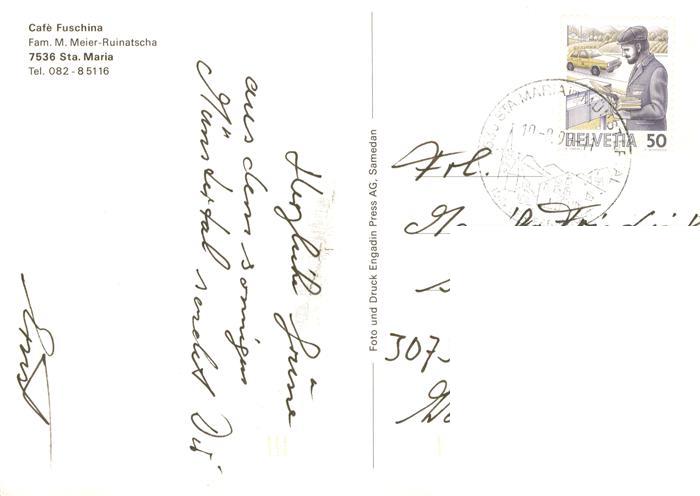 Cafè Fuschina
Fam. M. Meier-Ruinatscha
7536 Sta. Maria
Tel. 082 - 8 51 16
Herzliche Grüsse
aus dem sonnigen
Münstertal sendet Dir
Ernst
Foto und Druck Engadin Press AG, Samedan
STA. MARIA
HELVETIA 50
Frl.
307